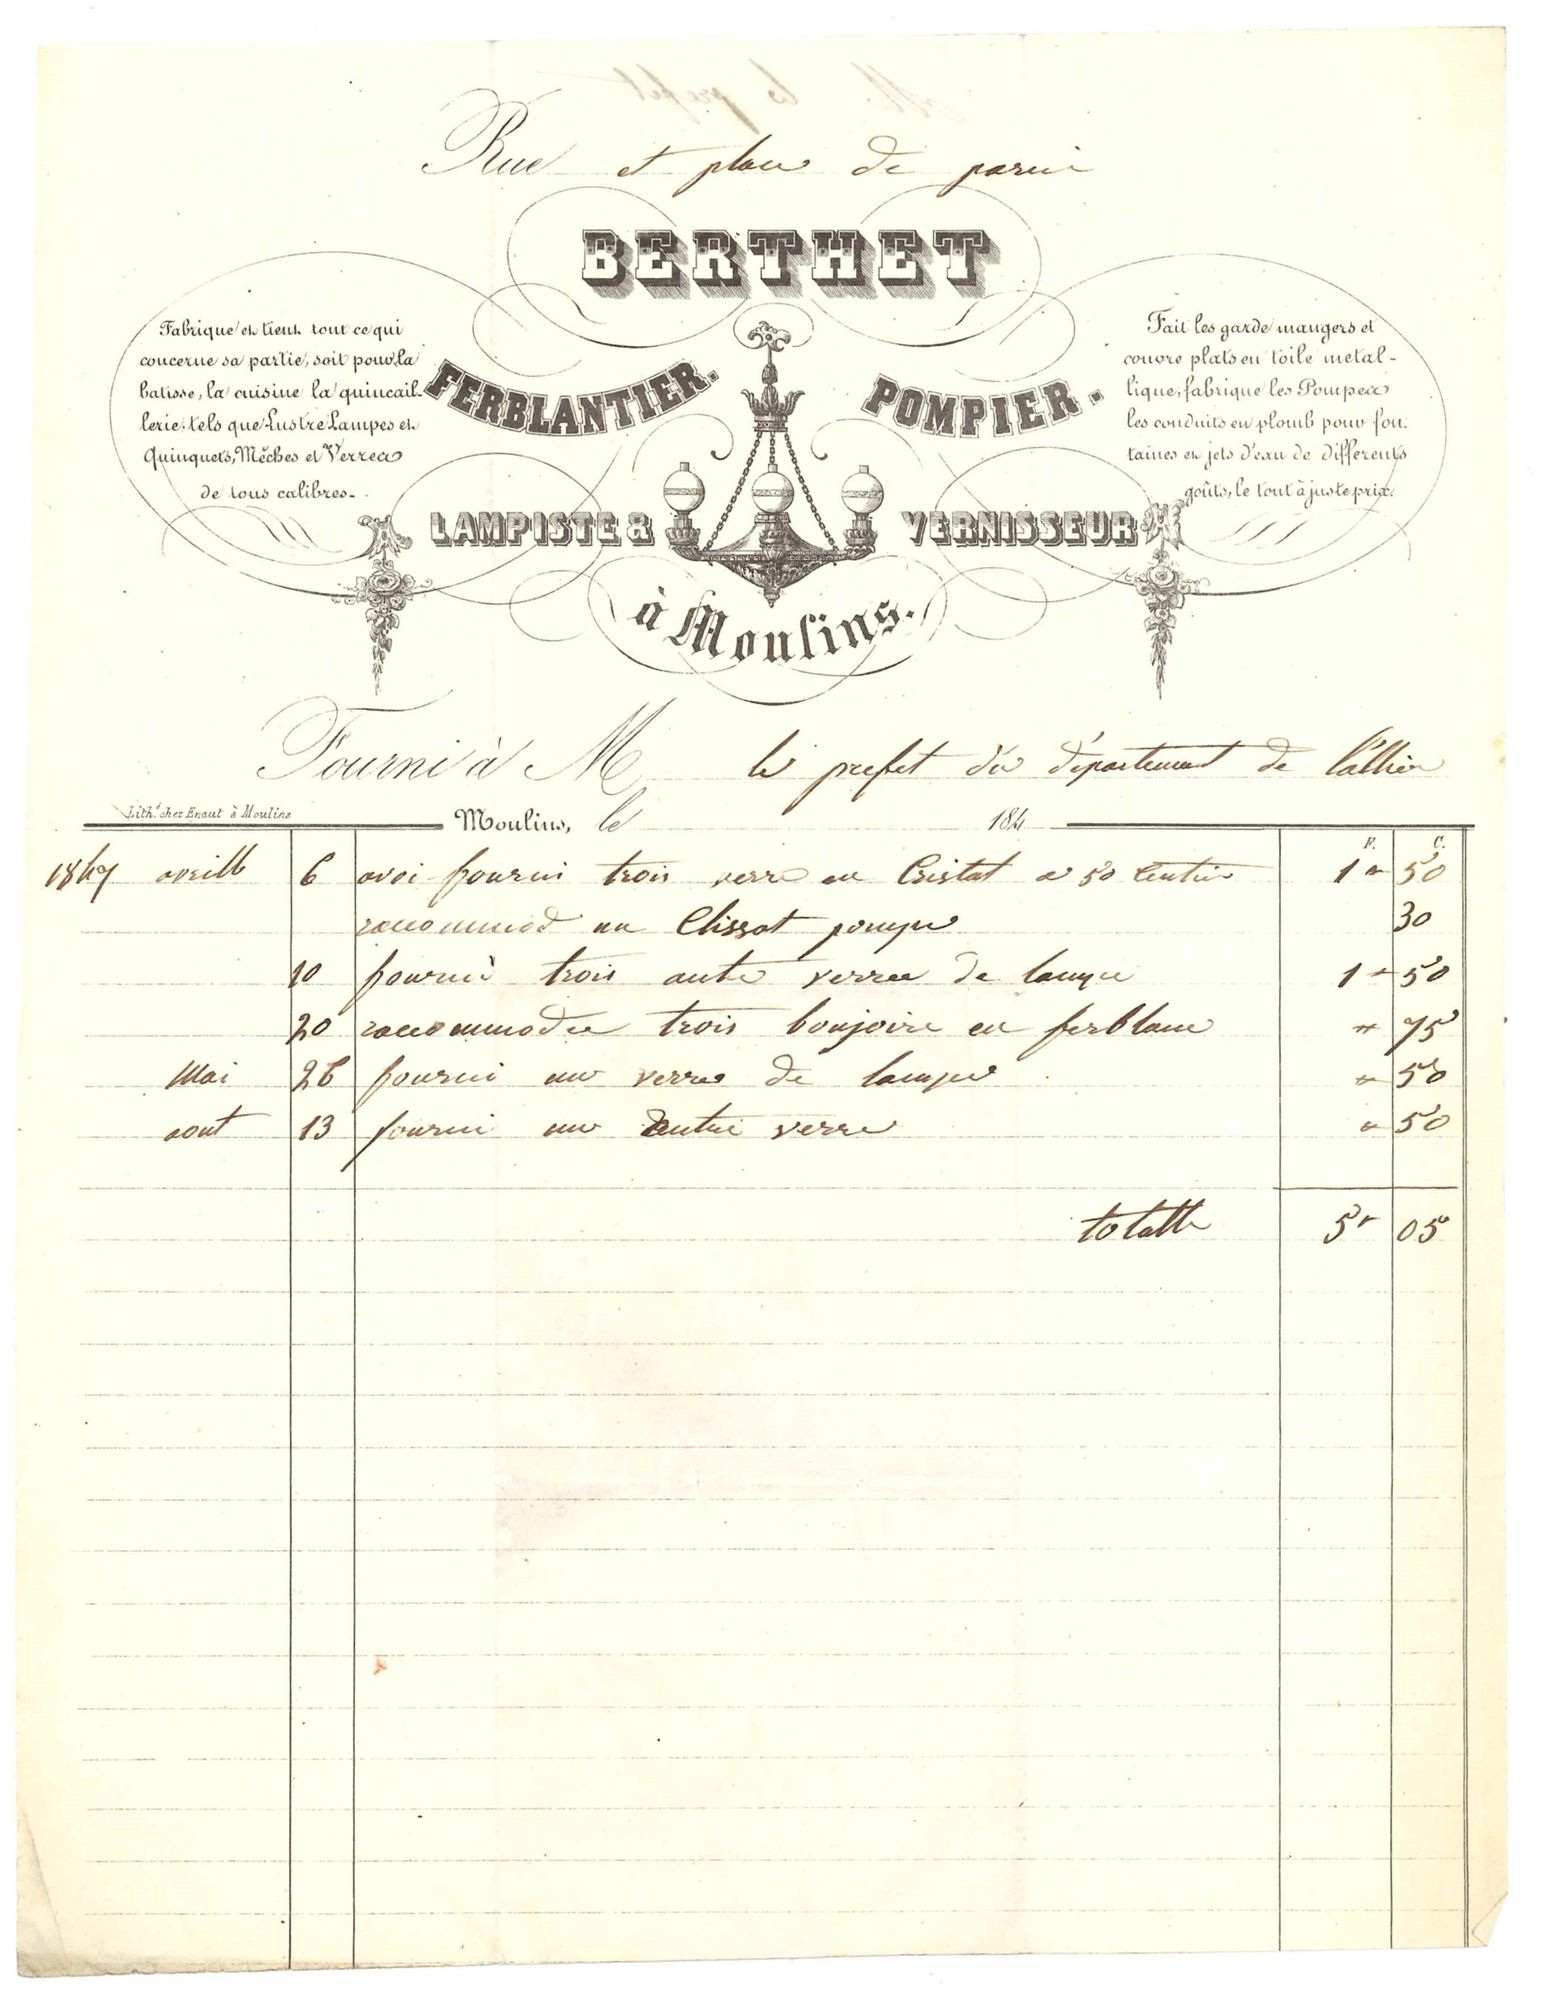 Rue et place de paris
BERTHET
Fabrique et tient tout ce qui
concerne sa partie, soit pour la
batisse, la cuisine la quincail-
lerie; tels que Lustre Lampes et
Quinquets, Mêches et Verres
de tous calibres.
FERBLANTIER.
POMPIER.
Fait les garde mangers et
couvre plats en toile metal-
lique, fabrique les Pompes
les conduits en plomb pour fon-
taines et jets d'eau de differents
goûts, le tout à juste prix.
LAMPISTE & VERNISSEUR
à Moulins.
Fourni à M le prefet du département de l'allier
Lith. chez Enaut à Moulins
Moulins, le 184
F. C.
1847 avrill 6 avoi fourni trois verre en Cristal a 50 1 50
raccommod un pompe 30
10 fourni trois autre verre de lampe 1 50
20 raccommodee trois boujoire en ferblanc " 75
Mai 26 fourni un verre de lampe " 50
aout 13 fourni un autre verre " 50
totalle 5 05